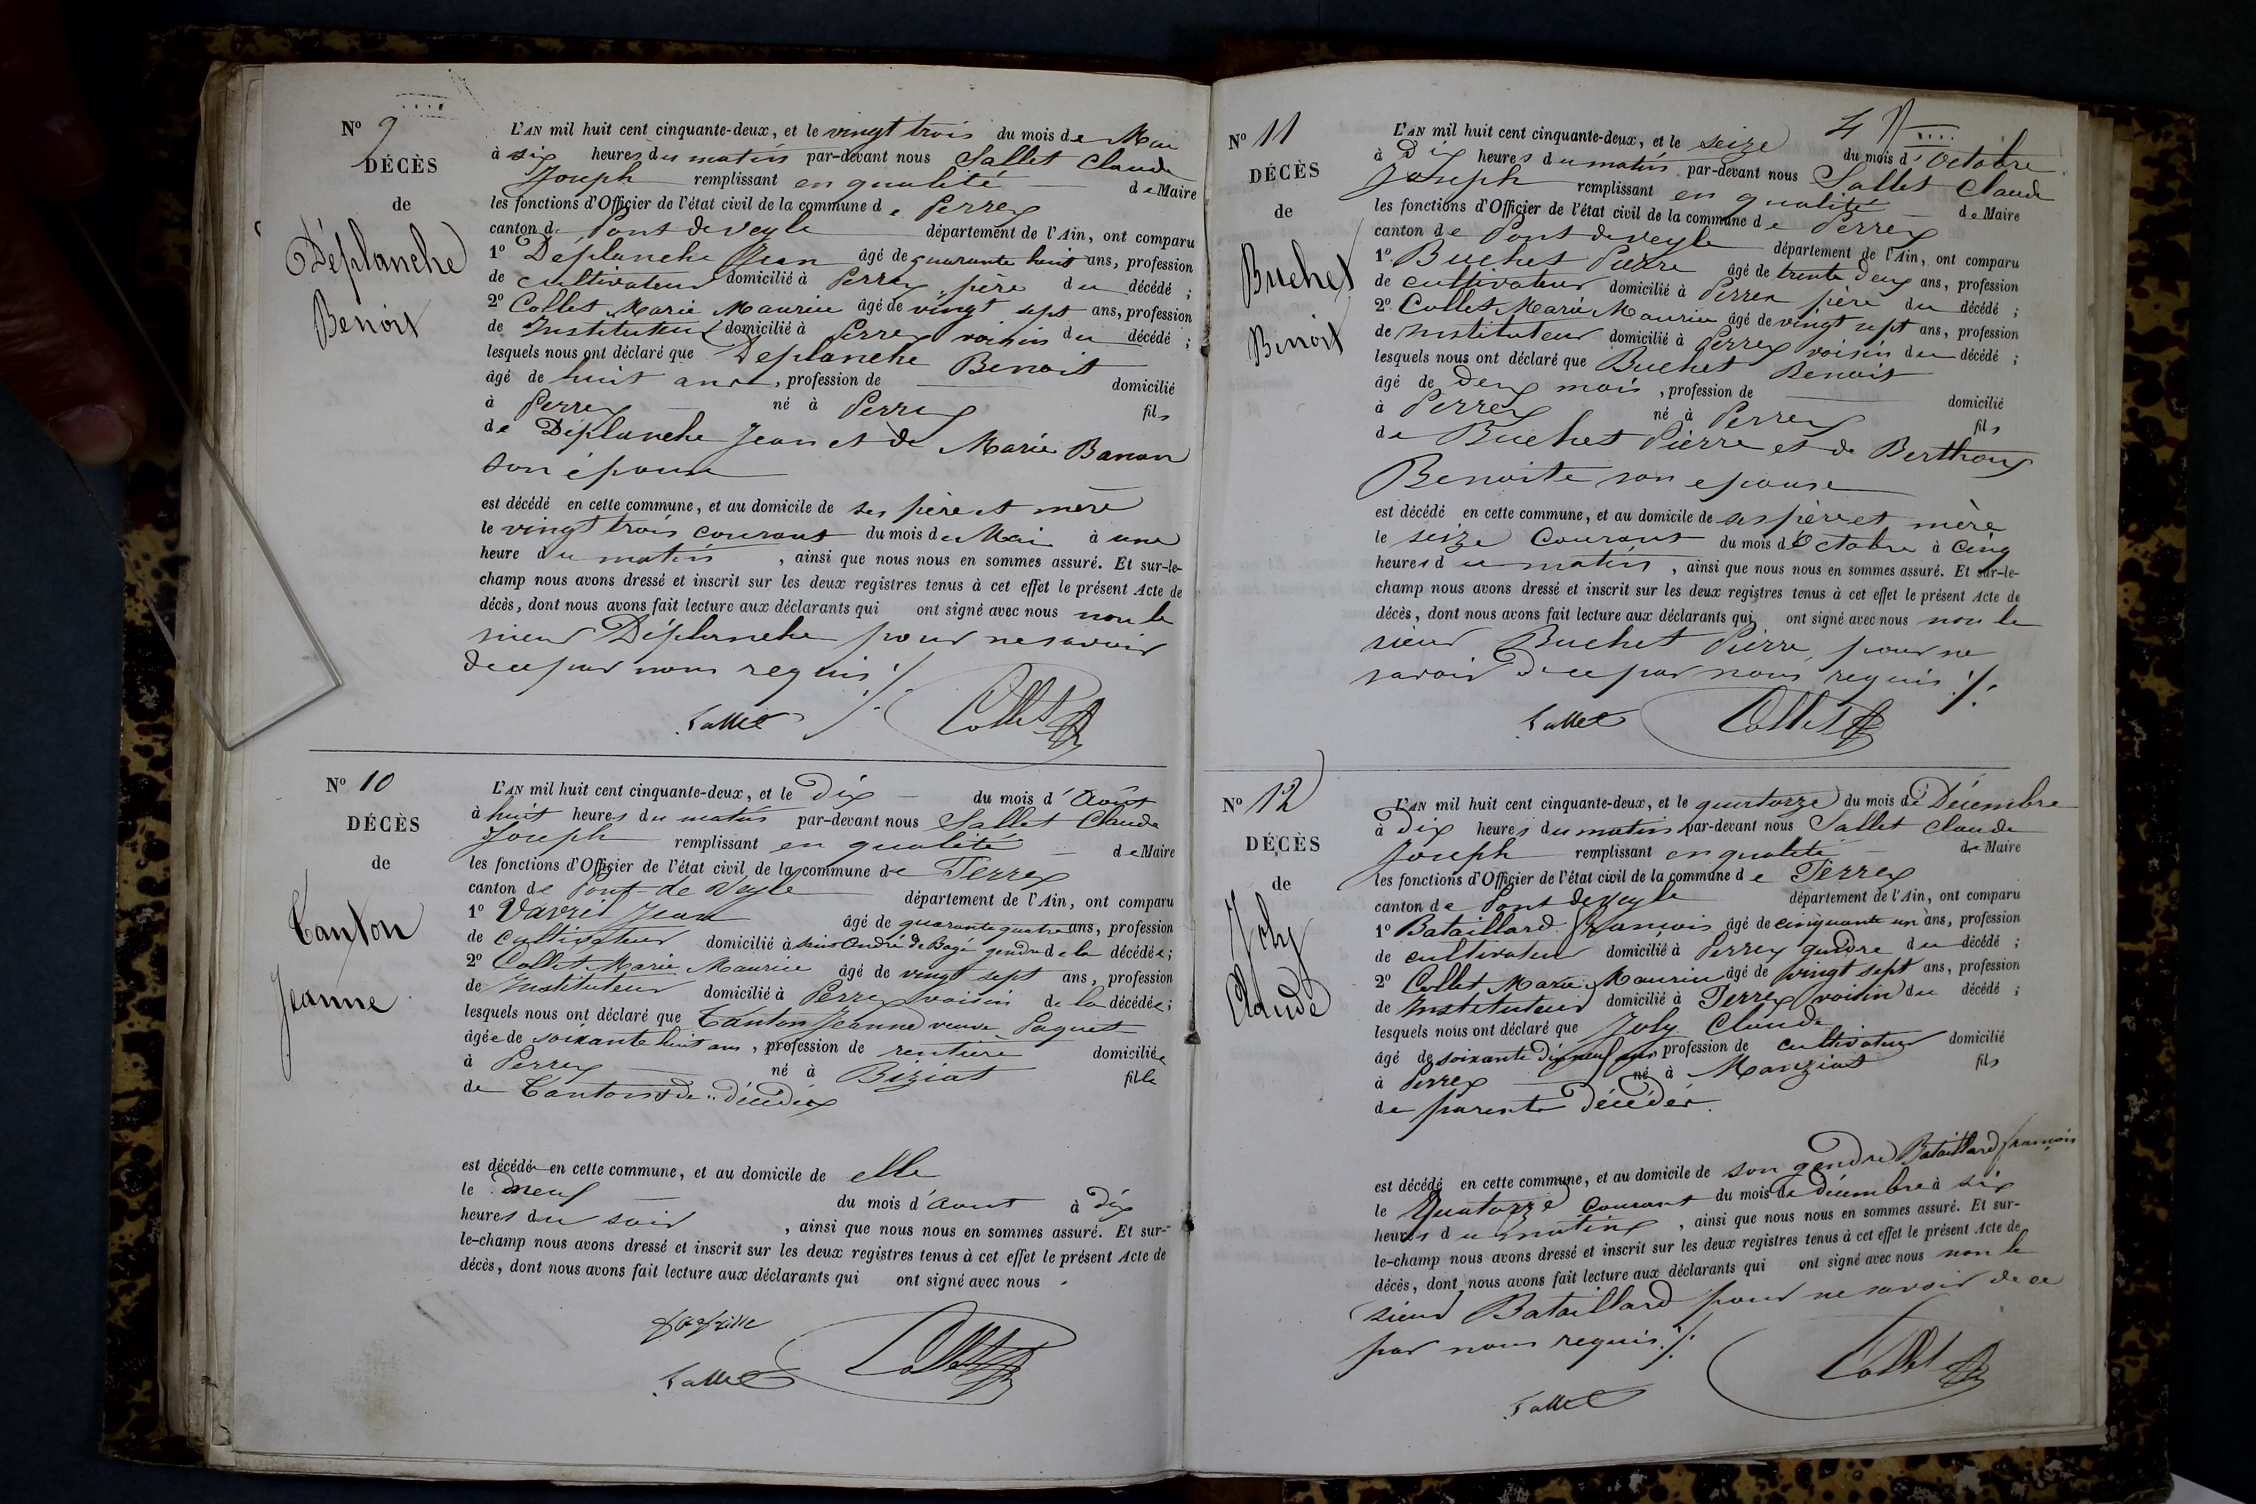 Nº 9
DÉCÈS
de
Déplanche
Benoit
L'AN mil huit cent cinquante-deux, et le vingt trois du mois de Mai
à six heures du matin par-devant nous Sallet Claude
Joseph remplissant en qualité de Maire
les fonctions d'Officier de l'état civil de la commune de Perrex
canton de Pont de veyle département de l'Ain, ont comparu
1º Déplanche Jean âgé de quarante huit ans, profession
de cultivateur domicilié à Perrex, père du décédé ;
2º Collet Marie Maurice âgé de vingt sept ans, profession
de Instituteur domicilié à Perrex voisin du décédé ;
lesquels nous ont déclaré que Déplanche Benoit
âgé de huit ans, profession de domicilié
à Perrex né à Perrex fils
de Déplanche Jean et de Marie Banan
son épouse
est décédé en cette commune, et au domicile de ses père et mère
le vingt trois courant du mois de Mai à une
heure du matin, ainsi que nous nous en sommes assuré. Et sur-le-
champ nous avons dressé et inscrit sur les deux registres tenus à cet effet le présent Acte de
décès, dont nous avons fait lecture aux déclarants qui ont signé avec nous non le
sieur Déplanche pour ne savoir
de ce par nous requis ./.
Sallet Collet
Nº 10
DÉCÈS
de
Tanton
Jeanne
L'AN mil huit cent cinquante-deux, et le dix du mois d'Août
à huit heures du matin par-devant nous Sallet Claude
Joseph remplissant en qualité de Maire
les fonctions d'Officier de l'état civil de la commune de Perrex
canton de Pont-de-Veyle département de l'Ain, ont comparu
1º Vavret Jean âgé de quarante quatre ans, profession
de cultivateur domicilié à André de Bagé gendre de la décédée ;
2º Collet Marie Maurice âgé de vingt sept ans, profession
de Instituteur domicilié à Perrex voisin de la décédée ;
lesquels nous ont déclaré que Tanton Jeanne veuve Paquet
âgée de soixante huit ans, profession de rentière domiciliée
à Perrex né à Biziat fille
de Tanton et de décédés
est décédé en cette commune, et au domicile de elle
le neuf du mois d'aout à dix
heures du soir, ainsi que nous nous en sommes assuré. Et sur-
le-champ nous avons dressé et inscrit sur les deux registres tenus à cet effet le présent Acte de
décès, dont nous avons fait lecture aux déclarants qui ont signé avec nous
Sallet Collet
4
Nº 11
DÉCÈS
de
Buchet
Benoit
L'AN mil huit cent cinquante-deux, et le seize du mois d'Octobre
à Dix heures du matin par-devant nous Sallet Claude
Joseph remplissant en qualité de Maire
les fonctions d'Officier de l'état civil de la commune de Perrex
canton de Pont de veyle département de l'Ain, ont comparu
1º Buchet Pierre âgé de trente deux ans, profession
de cultivateur domicilié à Perrex père du décédé ;
2º Collet Marie Maurice âgé de vingt sept ans, profession
de Instituteur domicilié à Perrex voisin du décédé ;
lesquels nous ont déclaré que Buchet Benoit
âgé de deux mois, profession de domicilié
à Perrex né à Perrex fils
de Buchet Pierre et de Berthoux
Benoite son epouse
est décédé en cette commune, et au domicile de ses père et mère
le seize Courant du mois d'Octobre à Cinq
heures du matin, ainsi que nous nous en sommes assuré. Et sur-le-
champ nous avons dressé et inscrit sur les deux registres tenus à cet effet le présent Acte de
décès, dont nous avons fait lecture aux déclarants qui ont signé avec nous non le
sieur Buchet Pierre, pour ne
savoir de ce par nous requis ./.
Sallet Collet
Nº 12
DÉCÈS
de
Joly
Claude
L'AN mil huit cent cinquante-deux, et le quatorze du mois de Décembre
à Dix heures du matin par-devant nous Sallet Claude
Joseph remplissant en qualité de Maire
les fonctions d'Officier de l'état civil de la commune de Perrex
canton de Pont de veyle département de l'Ain, ont comparu
1º Bataillard François âgé de cinquante un ans, profession
de cultivateur domicilié à Perrex gendre du décédé ;
2º Collet Marie Maurice âgé de vingt sept ans, profession
de Instituteur domicilié à Perrex voisin du décédé ;
lesquels nous ont déclaré que Joly Claude
âgé de soixante dix neuf ans profession de cultivateur domicilié
à Perrex né à Manziat fils
de parents décédés.
est décédé en cette commune, et au domicile de son gendre Bataillard françois
le Quatorze Courant du mois de décembre à six
heures du matin, ainsi que nous nous en sommes assuré. Et sur-
le-champ nous avons dressé et inscrit sur les deux registres tenus à cet effet le présent Acte de
décès, dont nous avons fait lecture aux déclarants qui ont signé avec nous non le
sieur Bataillard pour ne savoir de ce
par nous requis ./.
Sallet Collet